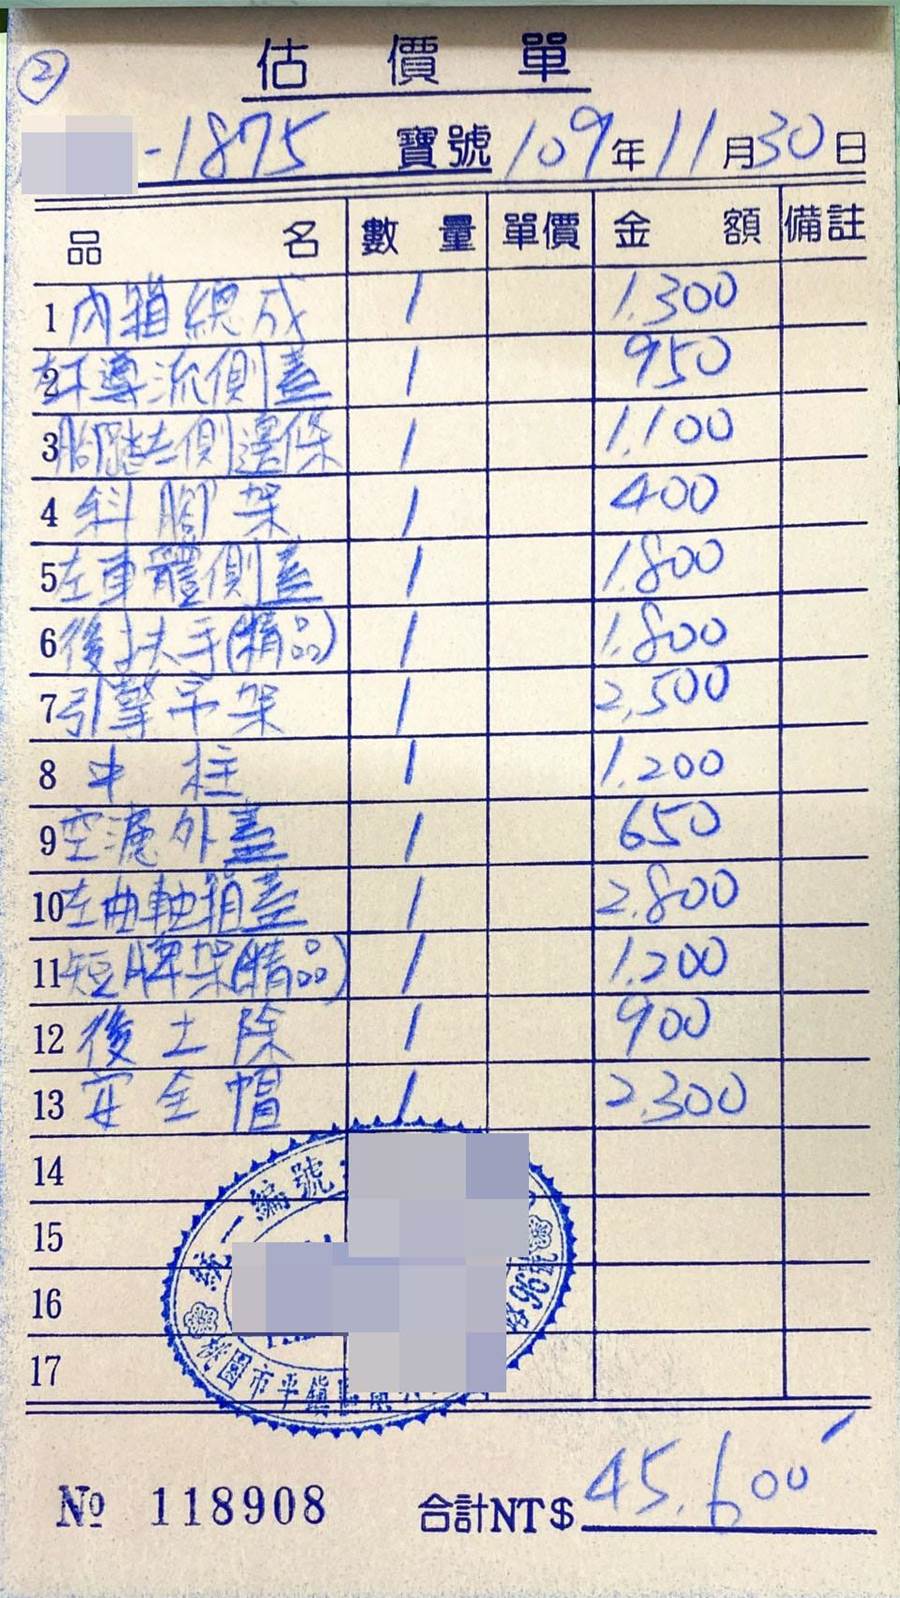 ②
估價單
-1875 寶號 109年11月30日
品名 數量 單價 金額 備註
1 內箱總成 1 1.300
2 左下導流側蓋 1 950
3 腳踏左側邊條 1 1.100
4 斜腳架 1 400
5 左車體側蓋 1 1.800
6 後扶手(精品) 1 1.800
7 引擎吊架 1 2,500
8 中柱 1 1.200
9 空濾外蓋 1 650
10 左曲軸箱蓋 1 2.800
11 短牌架(精品) 1 1.200
12 後土除 1 900
13 安全帽 1 2.300
14
15
16
17
統一編號:
桃園市平鎮區
96號
№ 118908 合計NT$ 45.600